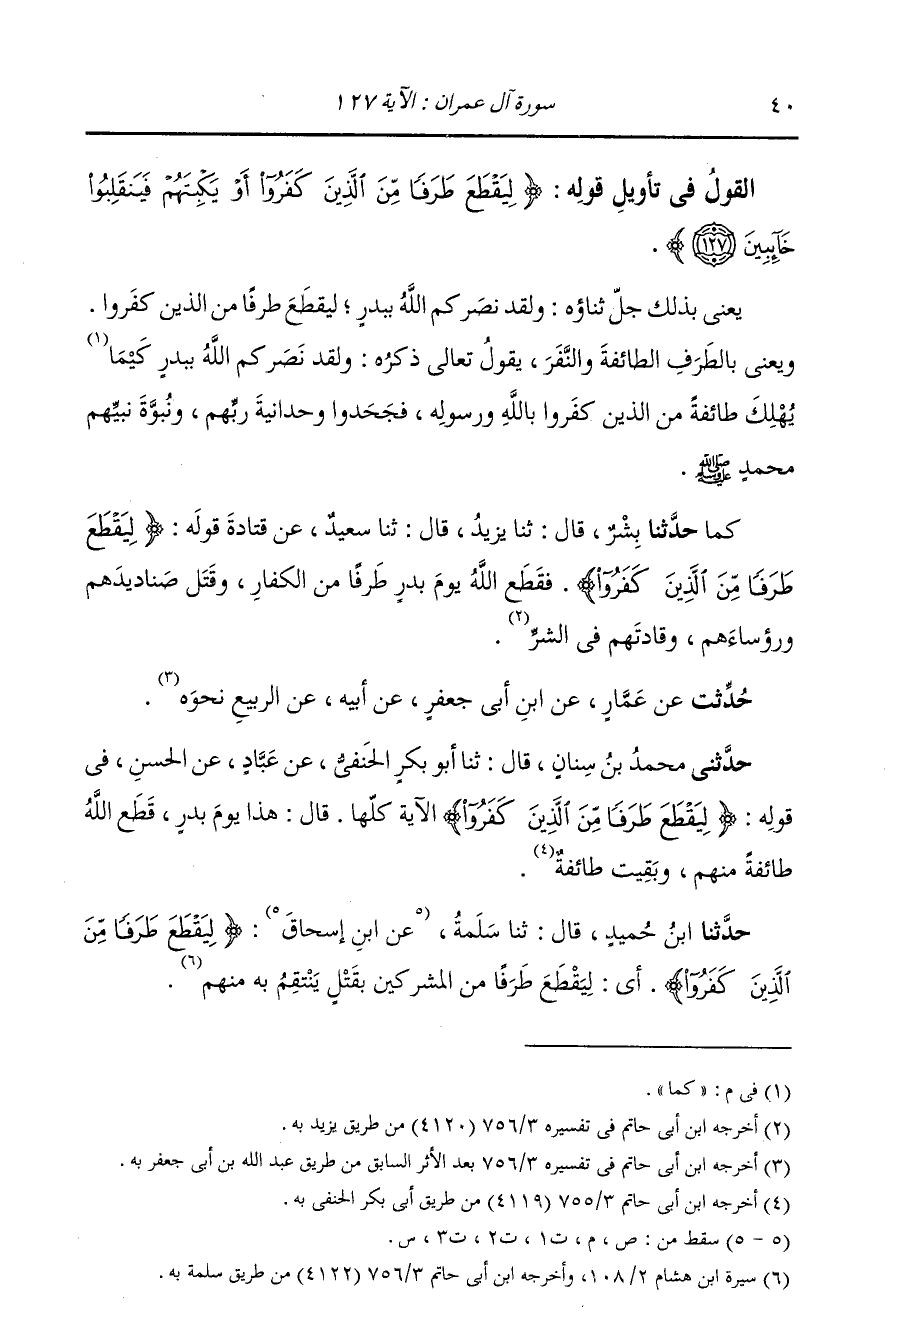 ٤٠ سورة آل عمران : الآية ١٢٧
القولُ فى تأويلِ قولِه : ﴿ لِيَقْطَعَ طَرَفًا مِّنَ ٱلَّذِينَ كَفَرُوٓا۟ أَوْ يَكْبِتَهُمْ فَيَنقَلِبُوا۟
خَآئِبِينَ ﴿١٢٧﴾ ﴾ .
يعنى بذلك جلّ ثناؤه : ولقد نصَركم اللَّهُ ببدرٍ ؛ ليقطَعَ طرفًا من الذين كفَروا .
ويعنى بالطَرَفِ الطائفةَ والنَّفَرَ ، يقولُ تعالى ذكرُه : ولقد نَصَركم اللَّهُ ببدرٍ كَيْمَا(١)
يُهْلِكَ طائفةً من الذين كفَروا باللَّهِ ورسولِه ، فجَحَدوا وحدانيةَ ربِّهم ، ونُبوَّةَ نبيِّهم
محمدٍ ﷺ .
كما حدَّثنا بِشْرٌ ، قال : ثنا يزيدُ ، قال : ثنا سعيدٌ ، عن قتادةَ قولَه : ﴿ لِيَقْطَعَ
طَرَفًا مِّنَ ٱلَّذِينَ كَفَرُوٓا۟﴾ . فقَطَع اللَّهُ يومَ بدرٍ طَرفًا من الكفارِ ، وقَتَل صَناديدَهم
ورؤساءَهم ، وقادتَهم فى الشرِّ(٢) .
حُدِّثت عن عَمَّارٍ ، عن ابنِ أبى جعفرٍ ، عن أبيه ، عن الربيعِ نحوَه(٣) .
حدَّثنى محمدُ بنُ سِنانٍ ، قال : ثنا أبو بكرٍ الحَنفىُّ ، عن عَبَّادٍ ، عن الحسنِ ، فى
قولِه : ﴿ لِيَقْطَعَ طَرَفًا مِّنَ ٱلَّذِينَ كَفَرُوٓا۟﴾ الآية كلّها . قال : هذا يومَ بدرٍ ، قَطَع اللَّهُ
طائفةً منهم ، وبَقِيت طائفةٌ(٤) .
حدَّثنا ابنُ حُميدٍ ، قال : ثنا سَلَمةُ ، (٥عن ابنِ إسحاقَ٥) : ﴿ لِيَقْطَعَ طَرَفًا مِّنَ
ٱلَّذِينَ كَفَرُوٓا۟﴾ . أى : لِيَقْطَعَ طَرَفًا من المشركين بقَتْلٍ يَنْتقِمُ به منهم(٦) .
(١) فى م : « كما » .
(٢) أخرجه ابن أبى حاتم فى تفسيره ٧٥٦/٣ (٤١٢٠) من طريق يزيد به .
(٣) أخرجه ابن أبى حاتم فى تفسيره ٧٥٦/٣ بعد الأثر السابق من طريق عبد الله بن أبى جعفر به .
(٤) أخرجه ابن أبى حاتم ٧٥٥/٣ (٤١١٩) من طريق أبى بكر الحنفى به .
(٥ - ٥) سقط من : ص ، م ، ت١ ، ت٢ ، ت٣ ، س .
(٦) سيرة ابن هشام ١٠٨/٢، وأخرجه ابن أبى حاتم ٧٥٦/٣ (٤١٢٢) من طريق سلمة به .